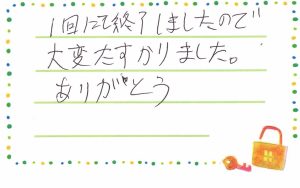 1回にて終了しましたので
大変たすかりました。
ありがとう